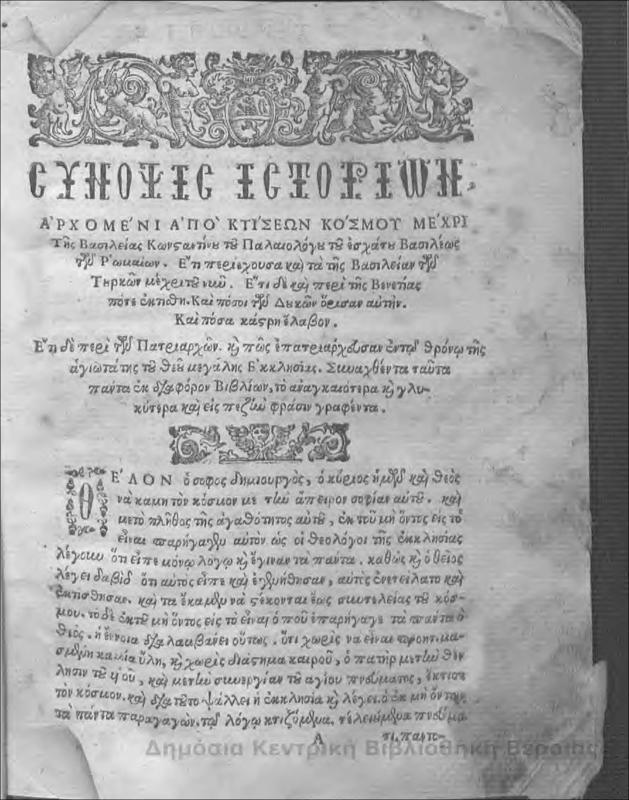 ΣΥΝΟΨΙΣ ΙΣΤΟΡΙΩΝ.
Α'ΡΧΟΜΕ'ΝΙ ΑΠΟ' ΚΤΙ'ΣΕΩΝ ΚΟ'ΣΜΟΥ ΜΕ'ΧΡΙ
Τῆς Βασιλείας Κωνσταντίνου τοῦ Παλαιολόγου τοῦ ἐσχάτου Βασιλέως
τῶν Ρ'ωμαίων. Ε'τι περιέχουσα καὶ τὰ τῆς Βασιλείαν τῶν
Τουρκῶν μέχρι τοῦ νιῦ. Ε'τι δὲ καὶ περὶ τῆς Βενετίας
πότε ἐκτίσθη. Καὶ πόσοι τῶν Δουκῶν ὅρισαν αὐτήν.
Καὶ πόσα κάστρη ἔλαβον.
Ε'τι δὲ περὶ τῶν Πατριαρχῶν. κ πῶς ἐπατριαρχεύσαν ἐν τῷ θρόνῳ τῆς
ἁγιωτάτης τοῦ Θεοῦ μεγάλης Ε'κκλησίας. Συναχθέντα ταῦτα
πάντα ἐκ διαφόρον Βιβλίων, τὸ ἀναγκαιότερα κ γλυ-
κύτερα καὶ εἰς πεζὴν φράσιν γραφέντα.
ΘΕ'ΛΟΝ ὁ σοφος δημιουργὸς, ὁ κύριος ἡμῶν καὶ θεὸς
νὰ κάμη τὸν κόσμον με τὴν ἄπειρον σοφίαν αὐτοῦ. καὶ
μετὸ πλῆθος τῆς ἀγαθότητος αὐτοῦ, ἐκ τοῦ μὴ ὄντος εἰς τὸ
εἶναι παρήγαγεν αὐτὸν ὡς οἱ θεολόγοι τῆς ἐκκλησίας
λέγουν ὅτι εἶπε μόνῳ λόγῳ κ ἔγιναν τὰ πάντα. καθὼς κ ὁ θεῖος
λέγει δαβὶδ ὅτι αὐτὸς εἶπε καὶ ἐγενήθησαν, αὐτὸς ἐνετείλατο καὶ
ἐκτίσθησαν. καὶ τὰ ἔκαμεν νὰ στέκονται ἕως συντελείας τοῦ κόσ-
μου. τὸ δὲ ἐκ τοῦ μὴ ὄντος εἰς τὸ εἶναι ὁποῦ ἐπαρήγαγε τὰ πάντα ὁ
θεὸς. ἡ ἔννοια διαλαμβάνει οὕτως. ὅτι χωρὶς νὰ εἶναι προητιμα-
σμένη καμία ὕλη, κ χωρὶς διάστημα καιροῦ, ὁ πατὴρ μετὴν θέ-
λησιν τοῦ υἱοῦ, καὶ μετὴν συνεργίαν τοῦ ἁγίου πνεύματος, ἔκτισε
τὸν κόσμον. καὶ διατοῦτο ψάλλει ἡ ἐκκλησία κ λέγει. ὁ ἐκ μὴ ὄντων
τὰ πάντα παραγαγὼν. τῷ λόγῳ κτιζόμενα, τελειούμενα πνεύμα-
Α
τι, παντ-
Δημόσια Κεντρική Βιβλιοθήκη Βέροιας